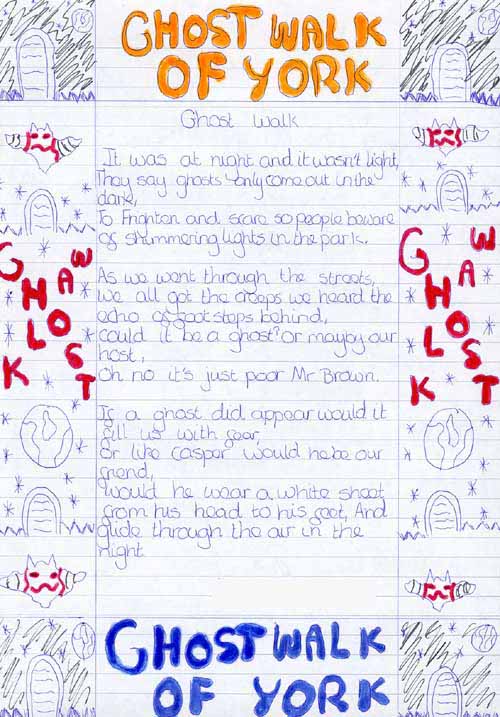 GHOST WALK
OF YORK
Ghost Walk
It was at night and it wasn't light,
They say ghosts only come out in the
dark,
To Frighten and scare so people beware
of shimmering lights in the park.
As we went through the streets,
we all got the creeps we heard the
echo of footsteps behind,
could it be a ghost? or mayby our
host,
Oh no it's just poor Mr Brown.
If a ghost did appear would it
fill us with fear,
or like casper would he be our
friend,
would he wear a white sheet
from his head to his feet, And
glide through the air in the
night
GHOST WALK
GHOST WALK
GHOST WALK
OF YORK